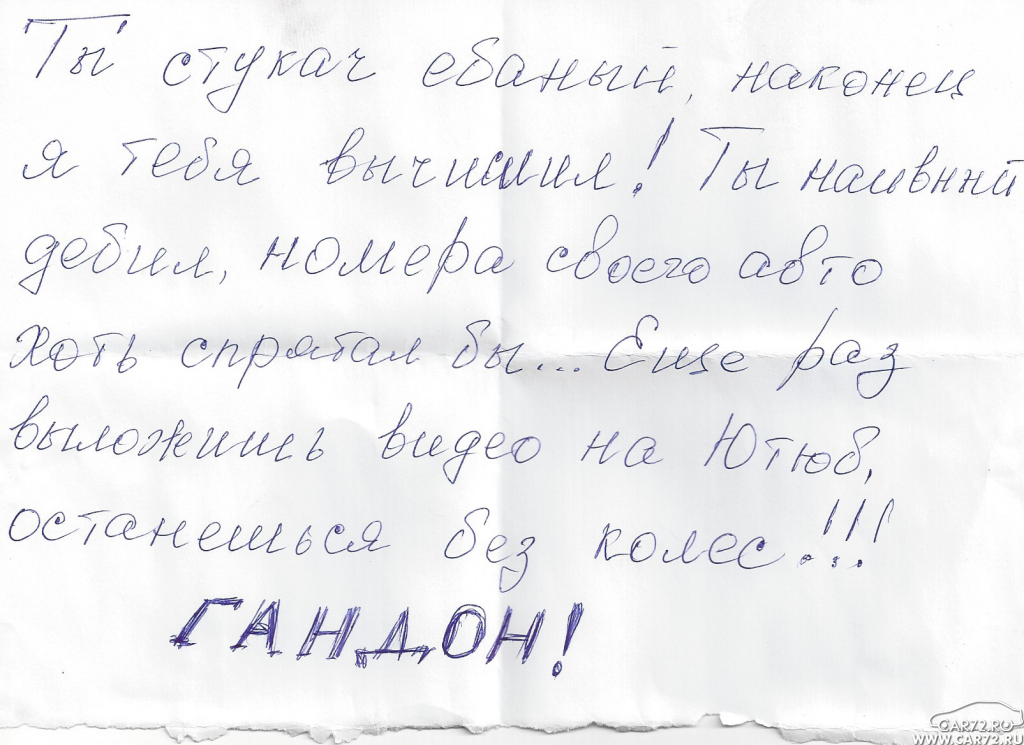 Ты стукач ебаный, наконец
я тебя вычислил! Ты наивный
дебил, номера своего авто
хоть спрятал бы... Еще раз
выложишь видео на Ютюб,
останешься без колес!!!
ГАНДОН!
CAR72.RU
WWW.CAR72.RU